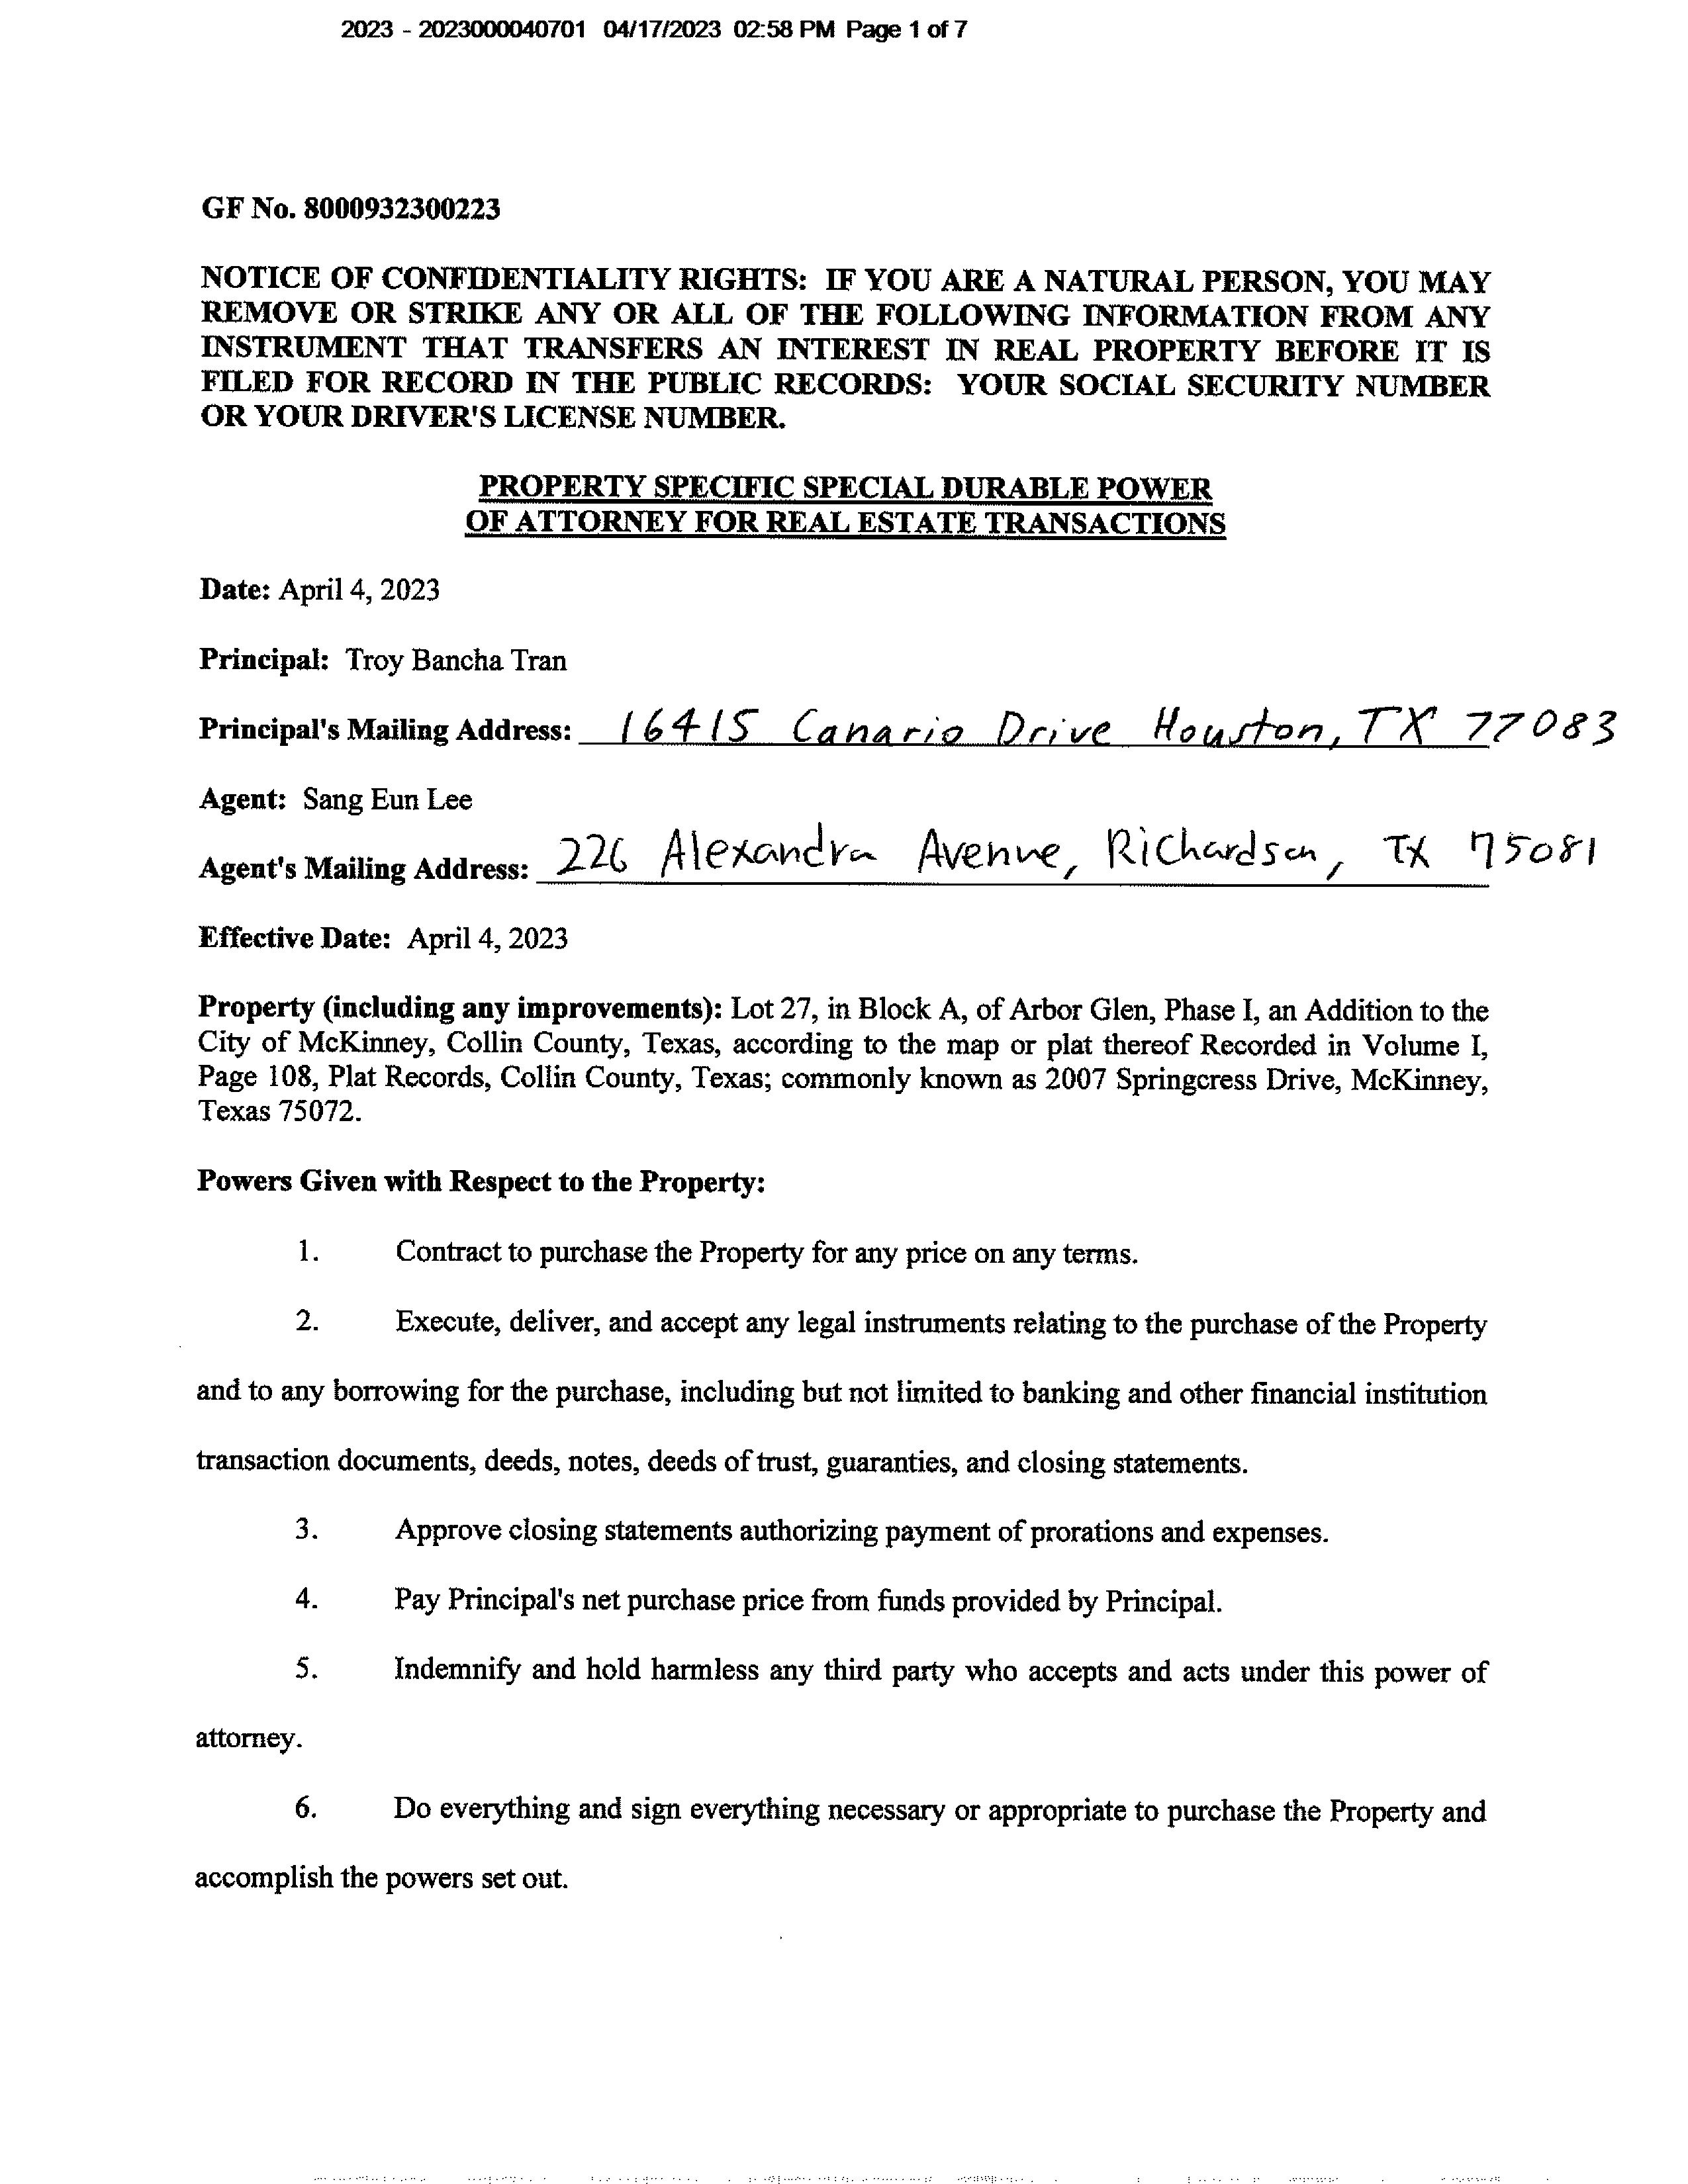 2023 - 2023000040701 04/17/2023 02:58 PM Page 1 of 7
GF No. 8000932300223
NOTICE OF CONFIDENTIALITY RIGHTS: IF YOU ARE A NATURAL PERSON, YOU MAY
REMOVE OR STRIKE ANY OR ALL OF THE FOLLOWING INFORMATION FROM ANY
INSTRUMENT THAT TRANSFERS AN INTEREST IN REAL PROPERTY BEFORE IT IS
FILED FOR RECORD IN THE PUBLIC RECORDS: YOUR SOCIAL SECURITY NUMBER
OR YOUR DRIVER'S LICENSE NUMBER.
PROPERTY SPECIFIC SPECIAL DURABLE POWER
OF ATTORNEY FOR REAL ESTATE TRANSACTIONS
Date: April 4, 2023
Principal: Troy Bancha Tran
Principal's Mailing Address: 16415 Canario Drive Houston, TX 77083
Agent: Sang Eun Lee
Agent's Mailing Address: 226 Alexandra Avenue, Richardson, TX 75081
Effective Date: April 4, 2023
Property (including any improvements): Lot 27, in Block A, of Arbor Glen, Phase I, an Addition to the
City of McKinney, Collin County, Texas, according to the map or plat thereof Recorded in Volume I,
Page 108, Plat Records, Collin County, Texas; commonly known as 2007 Springcress Drive, McKinney,
Texas 75072.
Powers Given with Respect to the Property:
1. Contract to purchase the Property for any price on any terms.
2. Execute, deliver, and accept any legal instruments relating to the purchase of the Property
and to any borrowing for the purchase, including but not limited to banking and other financial institution
transaction documents, deeds, notes, deeds of trust, guaranties, and closing statements.
3. Approve closing statements authorizing payment of prorations and expenses.
4. Pay Principal's net purchase price from funds provided by Principal.
5. Indemnify and hold harmless any third party who accepts and acts under this power of
attorney.
6. Do everything and sign everything necessary or appropriate to purchase the Property and
accomplish the powers set out.